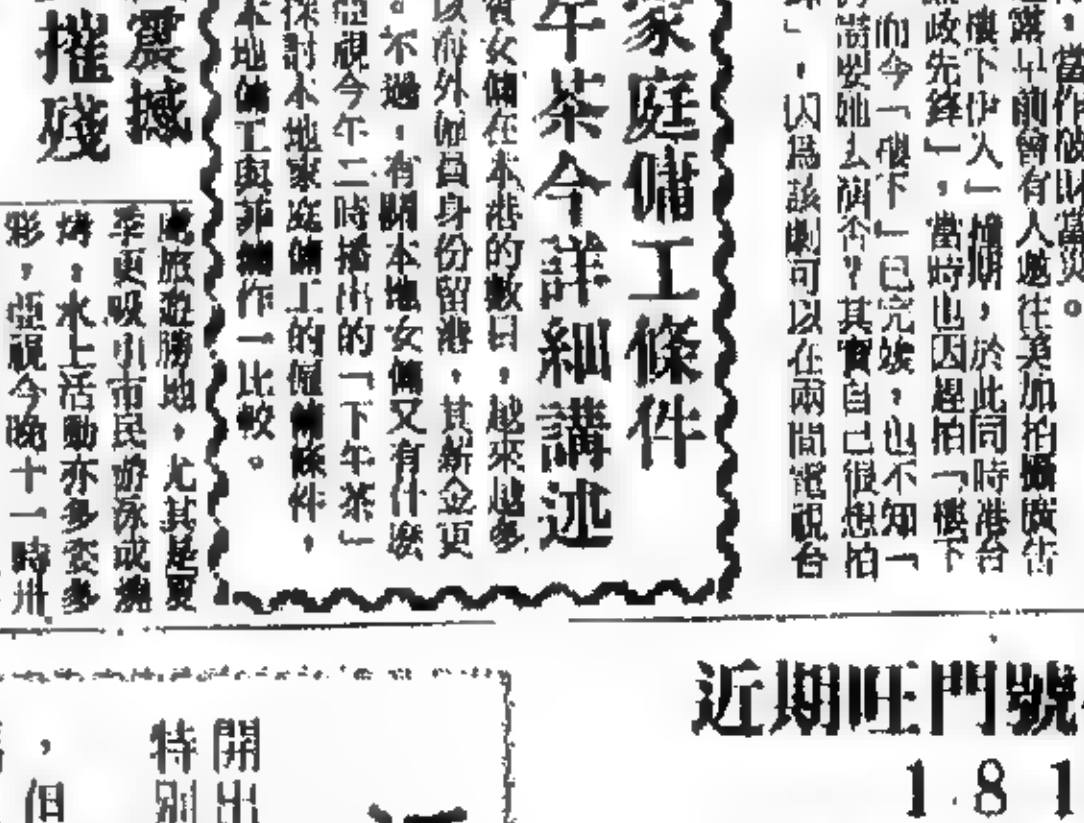 ，當作破財當災。
早前曾有人邀往美加拍攝廣告
樓下伊人」檔期，於此同時港台
歧先鋒」，當時也因趕拍「樓下
而今「樓下」已完竣，也不知「
要她去演否？其實自己很想拍
」，因為該劇可以在兩間電視台
家庭傭工條件
午茶今詳細講述
賓女傭在本港的數目，越來越多
以海外僱員身份留港，其薪金更
。不過，有關本地女傭又有什麼
亞視今午二時播出的「下午茶」
探討本地家庭傭工的僱傭條件，
本地傭工與菲傭作一比較。
震撼
摧殘
旅遊勝地，尤其是夏
季更吸引市民游泳或燒
烤，水上活動亦多姿多
彩，亞視今晚十一時卅
近期旺門號
1 8 1
開出
特別
，但